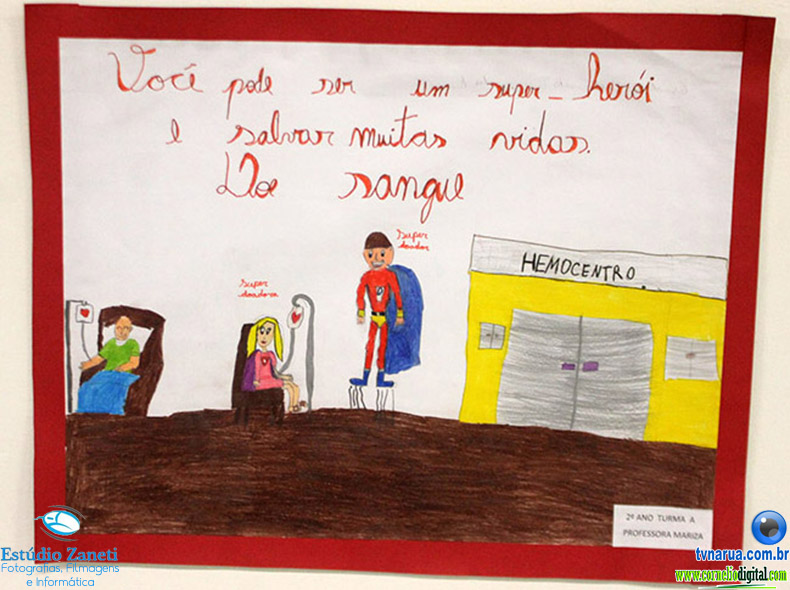 Você pode ser um super-herói
e salvar muitas vidas.
Doe sangue
super
doador
super
doadora
HEMOCENTRO
2º ANO TURMA A
PROFESSORA MARIZA
Estúdio Zaneti
Fotografias, Filmagens
e Informática
tvnarua.com.br
www.corneliodigital.com